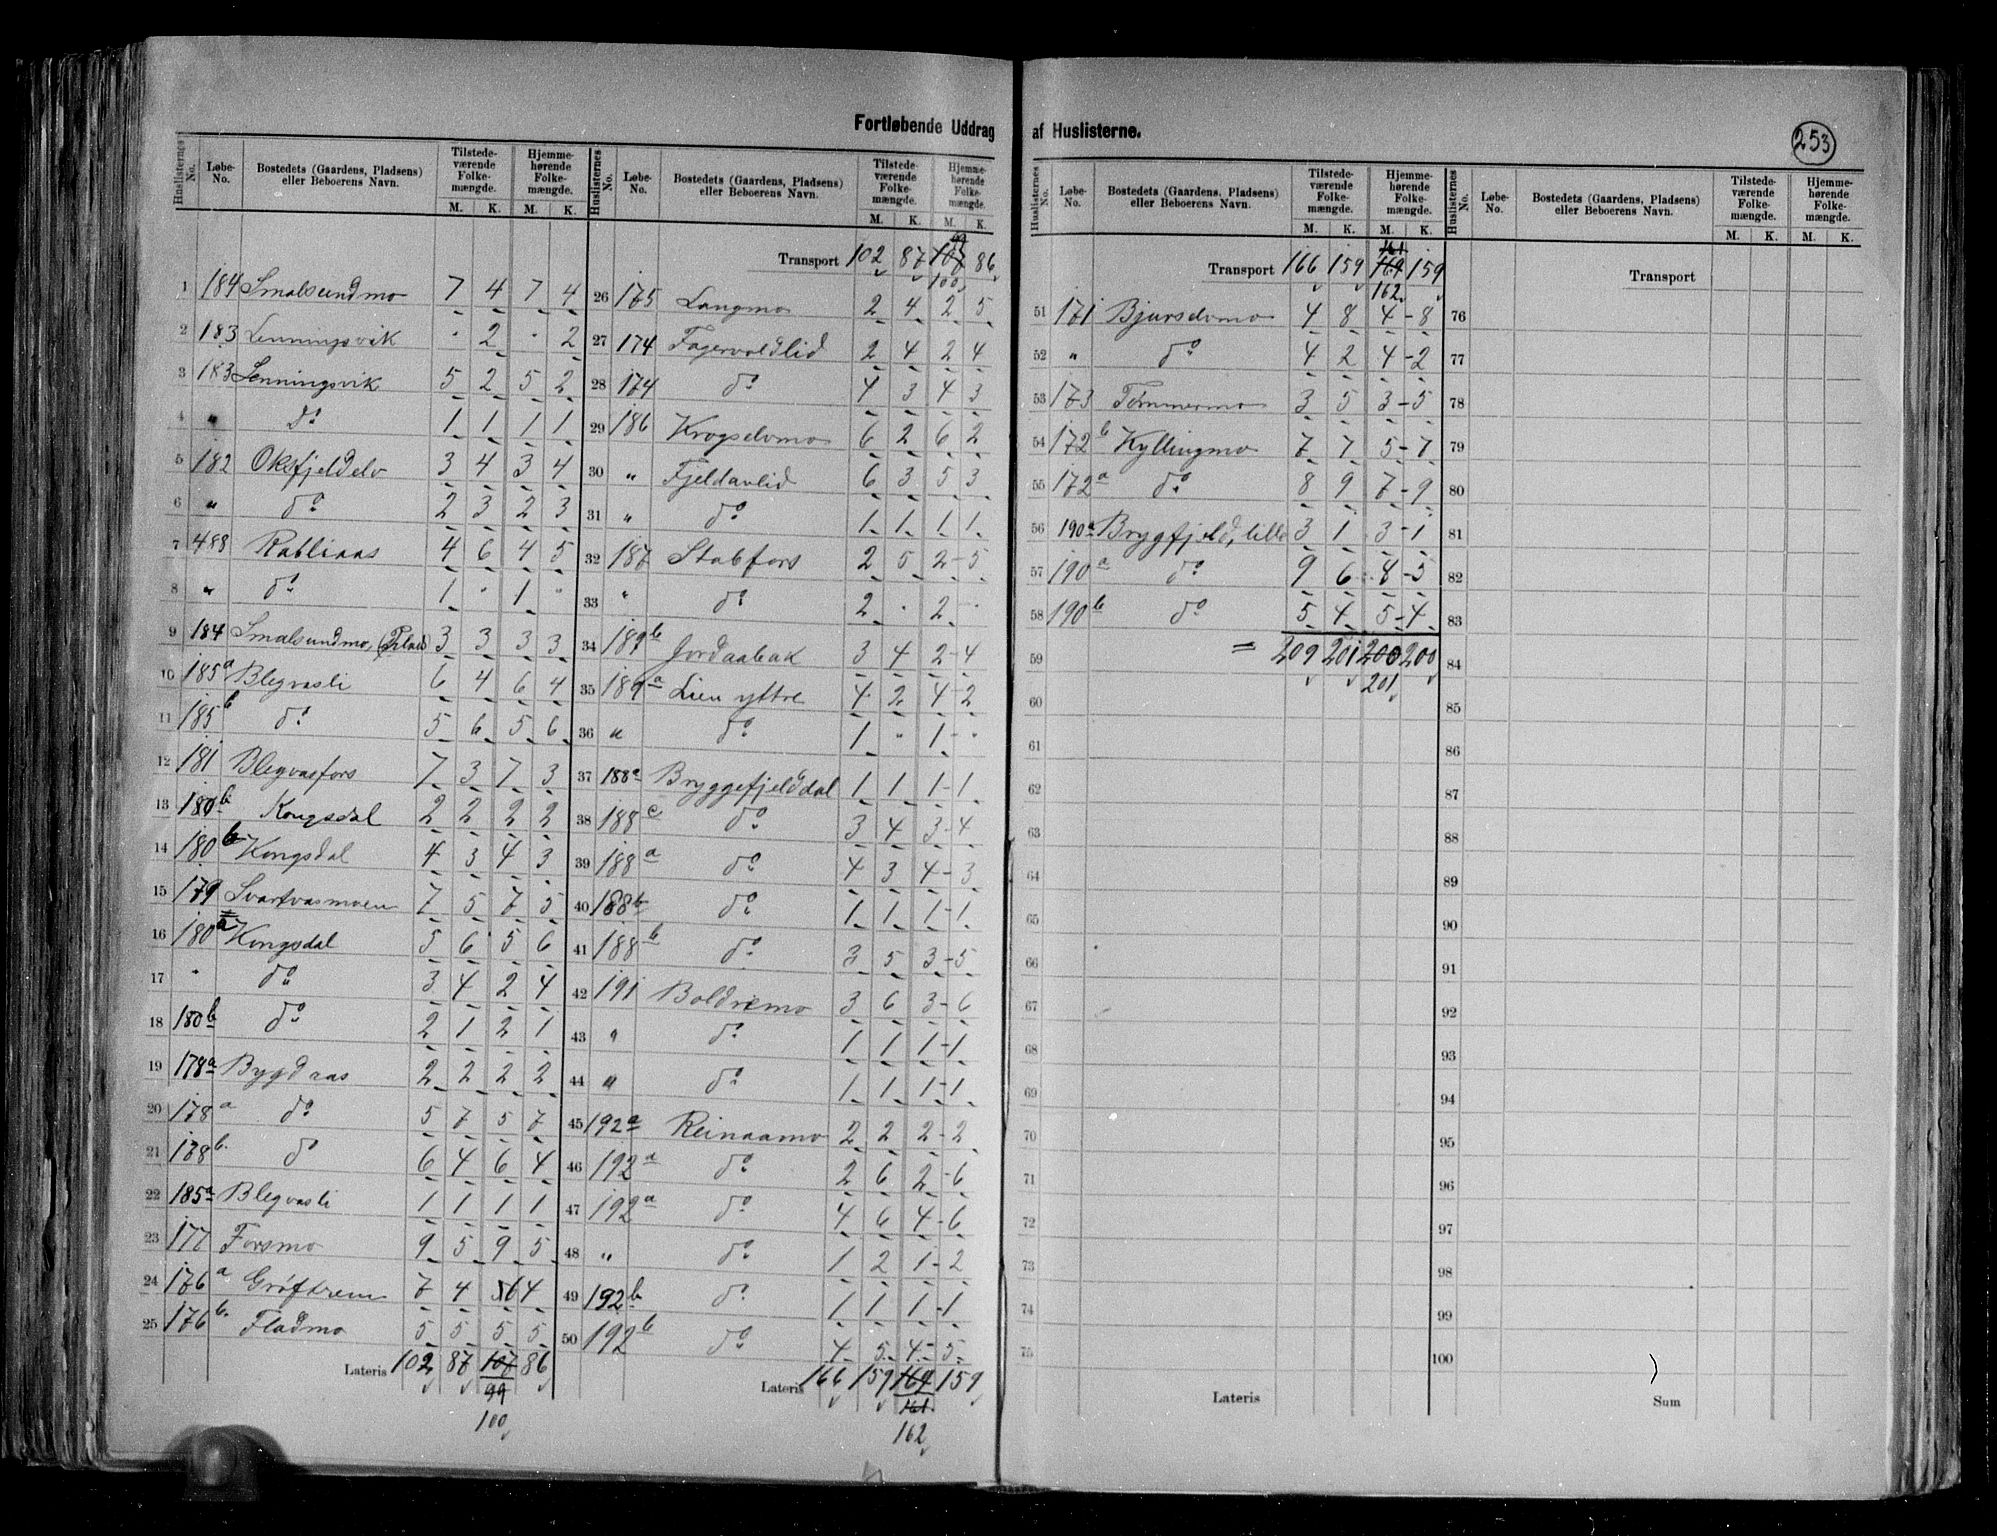 Fortløbende Uddrag af Huslisterne.
253
Huslisternes No. Løbe-No. Bostedets (Gaardens, Pladsens) eller Beboerens Navn. Tilstedeværende Folkemængde. M. K. Hjemmehørende Folkemængde. M. K.
1 184 Smalsundmo 7 4 7 4
2 183 Lenningsvik " 2 " 2
3 183 Lenningsvik 5 2 5 2
4 " do 1 1 1 1
5 182 Oksfjeldelv 3 4 3 4
6 " do 2 3 2 3
7 488 Rabliaas 4 6 4 5
8 " do 1 " 1 "
9 184 Smalsundmo, 3 3 3 3
10 185a Blegvasli 6 4 6 4
11 185b do 5 6 5 6
12 181 Blegvasfors 7 3 7 3
13 180b Kongsdal 2 2 2 2
14 180b Kongsdal 4 3 4 3
15 179 Svartvasmoen 7 5 7 5
16 180a Kongsdal 5 6 5 6
17 " do 3 4 2 4
18 180b do 2 1 2 1
19 178a Bygdaas 2 2 2 2
20 178a do 5 7 5 7
21 178b. do 6 4 6 4
22 185a Blegvasli 1 1 1 1
23 177 Forsmo 9 5 9 5
24 176a Grøftrem 7 4 6 4
25 176b. Fladmo 5 5 5 5
Lateris 102 87 107 86
99
100
Huslisternes No. Løbe-No. Bostedets (Gaardens, Pladsens) eller Beboerens Navn. Tilstedeværende Folkemængde. M. K. Hjemmehørende Folkemængde. M. K.
99
Transport 102 87 107 86
100
26 175 Langmo 2 4 2 5
27 174 Fagervoldlid 2 4 2 4
28 174 do 4 3 4 3
29 186 Krogselvmo 6 2 6 2
30 " Fjeldavlid 6 3 5 3
31 " do 1 1 1 1
32 187 Stabfors 2 5 2-5
33 " do 2 " 2 "
34 189b Jordaabak 3 4 2-4
35 189a Lien yttre 4 2 4-2
36 " do 1 " 1-"
37 188a Bryggefjelddal 1 1 1-1
38 188c do 3 4 3-4
39 188a do 4 3 4-3
40 188b do 1 1 1-1
41 188b do 3 5 3-5
42 191 Boldremo 3 6 3-6
43 " do 1 1 1-1
44 " do 1 1 1-1
45 192a Reinaamo 2 2 2-2
46 192a do 2 6 2-6
47 192a do 4 6 4-6
48 " do 1 2 1-2
49 192b do 1 1 1-1
50 192b do 4 5 4-5
Lateris 166 159 164 159
161
162
Huslisternes No. Løbe-No. Bostedets (Gaardens, Pladsens) eller Beboerens Navn. Tilstedeværende Folkemængde. M. K. Hjemmehørende Folkemængde. M. K.
161
Transport 166 159 169 159
162
51 171 Bjurselvmo 4 8 4-8
52 " do 4 2 4-2
53 173 Tømmermo 3 5 3-5
54 172b Kyllingmo 7 7 5-7
55 172a do 8 9 7-9
56 190a Bryggfjeld, lille 3 1 3-1
57 190a do 9 6 8-5
58 190b do 5 4 5-4
59 = 209 201 200 200
60 201
61
62
63
64
65
66
67
68
69
70
71
72
73
74
75
Lateris
Huslisternes No. Løbe-No. Bostedets (Gaardens, Pladsens) eller Beboerens Navn. Tilstedeværende Folkemængde. M. K. Hjemmehørende Folkemængde. M. K.
Transport
76
77
78
79
80
81
82
83
84
85
86
87
88
89
90
91
92
93
94
95
96
97
98
99
100
Sum